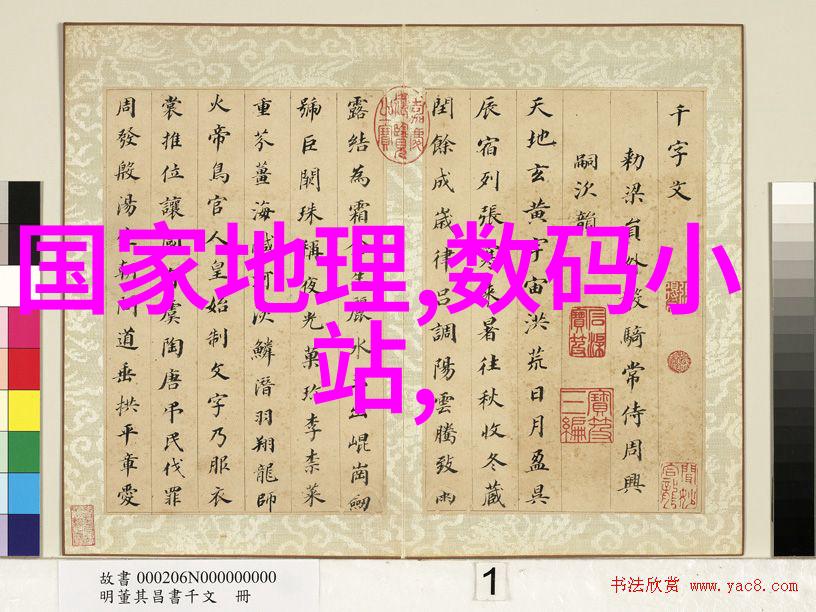 国家地理,数码小
站,
千字文
勅梁員外散騎常侍周興
嗣次韻
天地玄黃宇宙洪荒日月盈昃
辰宿列張寒來暑往秋收冬藏
閏餘成歲律呂調陽雲騰致雨
露結為霜金生麗水出崐崗劒
號巨闕珠稱夜光菓珍李柰菜
重芥薑海鹹河淡鱗潛羽翔龍師
火帝鳥官人皇始制文字乃服衣
裳推位讓國有虞陶唐弔民伐罪
周發殷湯朝問道垂拱平章愛
嘉慶御覽之寶
石渠寶笈
寶笈三編
故書 000206N000000000
明董其昌書千文 冊
1
书法欣赏 www.yac8.com